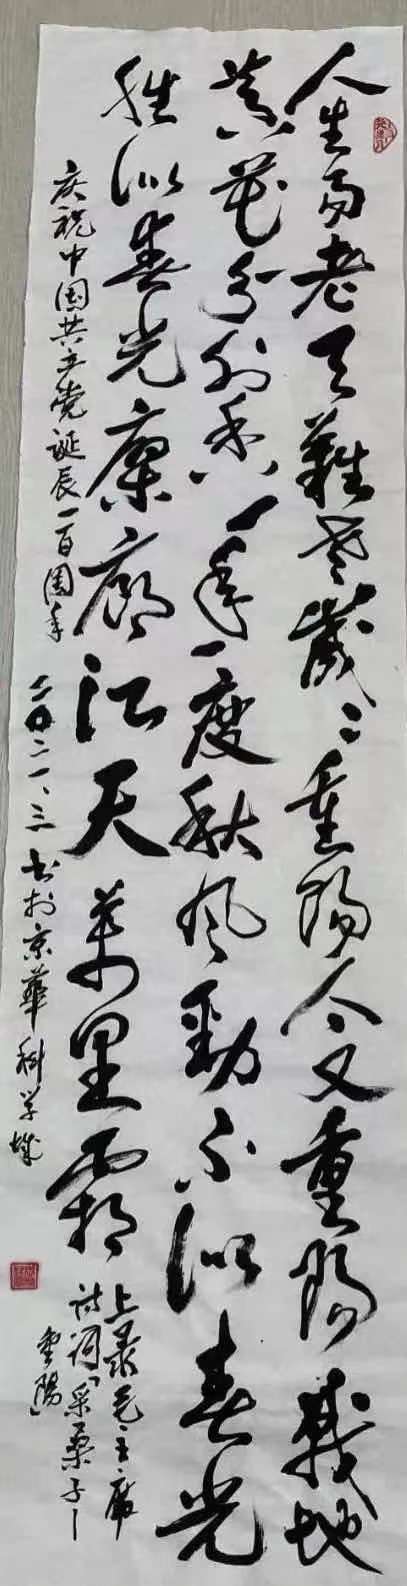 人生易老天难老岁岁重阳今又重阳战地
黄花分外香一年一度秋风劲不似春光
胜似春光寥廓江天万里霜
上录毛主席
诗词「采桑子—
重阳」
庆祝中国共产党诞辰一百周年
二〇二一、三书于京华科学城